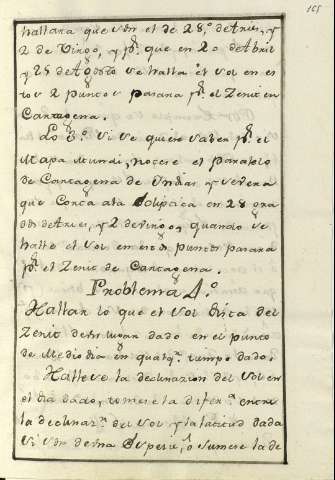 165
hallara que son el de 28,° de Aries, y
2 de Virgo, y p.r que en 20 de Abril
y 25 de Agosto se halla el sol en es
tos 2 puntos pasara p.r el Zenit en
Cartagena.
Lo 3.° si se quiere saber p.r el
Mapa Mundi, notese el paralelo
de Cartagena de Indias y se verá
que corta ala Ecliptica en 28 gra
dos de Aries, y 2 de Virgo, y quando se
halle el sol en estos puntos pasara
p.r el Zenit de Cartagena.
Problema 4.°
Hallar lo que el sol dista del
Zenit de un lugar dado en el punto
de Medio dia en qualq.r tiempo dado.
Hallese la declinacion del sol en
el dia dado, tomese la difer.a entre
la declinaz.n del sol y la latitud dada
si son de una especie, o sumese la de